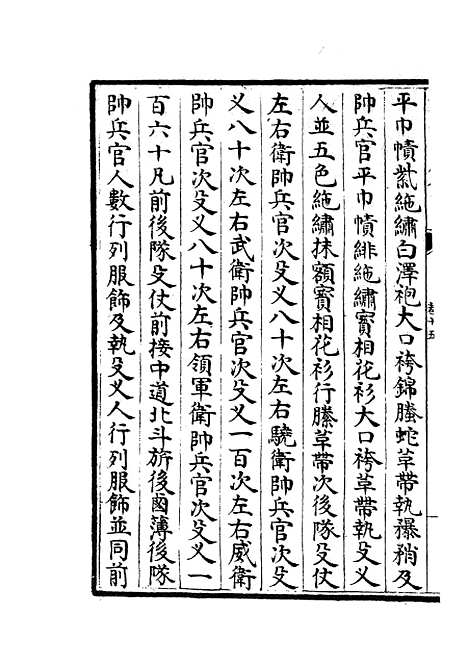 平巾幘紫絁繡白澤袍大口袴錦螣蛇革帶執矟及
帥兵官平巾幘緋絁繡寶相花衫大口袴革帶執殳义
人並五色絁繡抹額寶相花衫行縢革帶次後隊殳仗
左右衛帥兵官次殳义八十次左右驍衛帥兵官次殳
义八十次左右武衛帥兵官次殳义一百次左右威衛
帥兵官次殳义八十次左右領軍衛帥兵官次殳义一
百六十凡前後隊殳仗前接中道北斗旂後鹵薄後隊
帥兵官人數行列服飾及執殳义人行列服飾並同前
卷十五